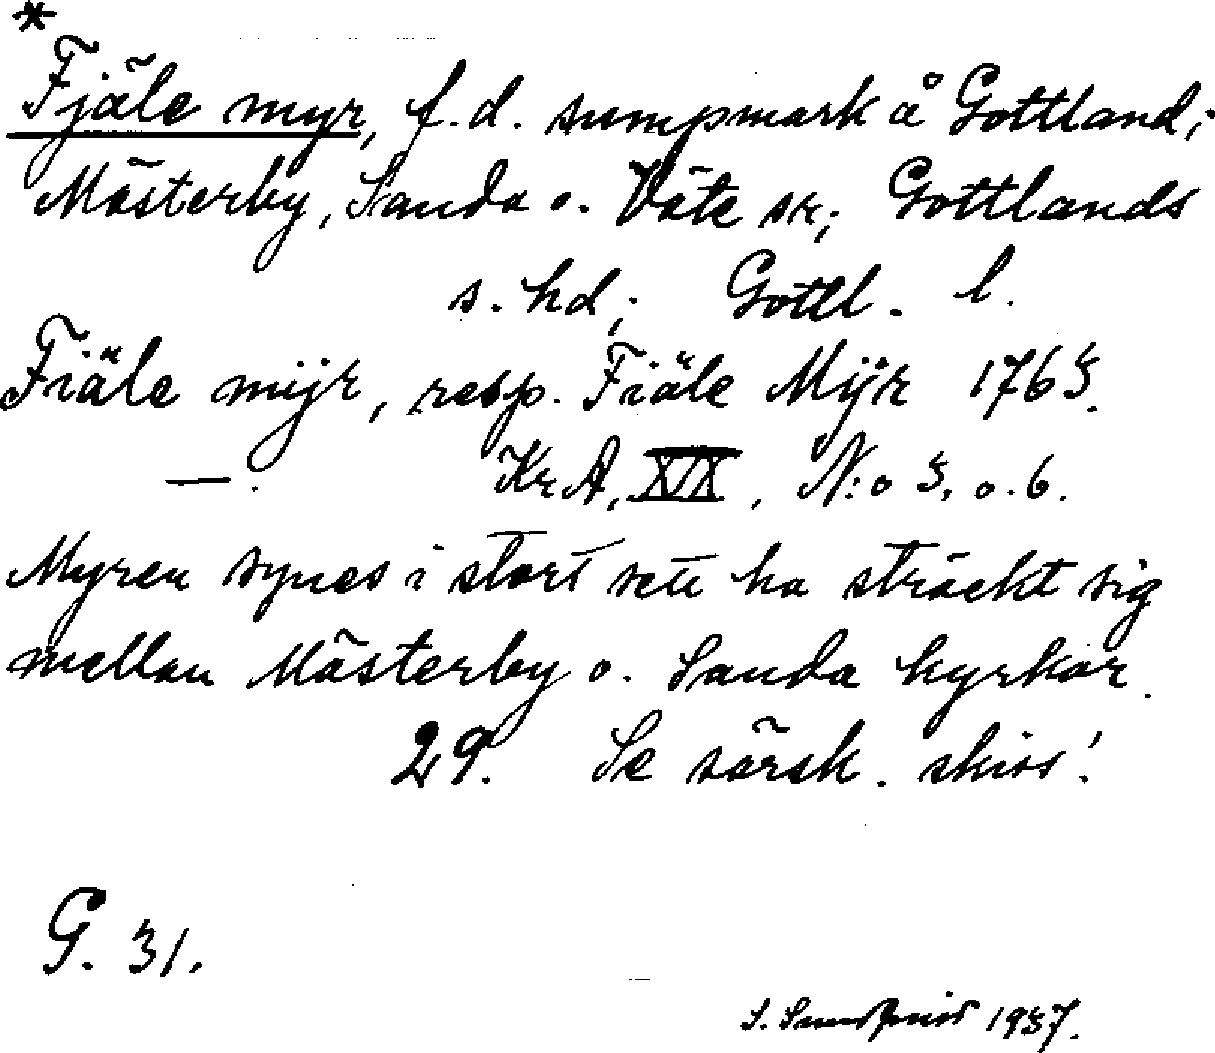 *
Fjäle myr, f.d. sumpmark å Gottland;
Mästerby, Sanda o. Väte sn; Gottlands
s. hd; Gottl. l.
Fiäle mijr, resp. Fiäle Mÿr 1763.
—. KrA, XIX, N:o 3, o. 6.
Myren synes i stort sett ha sträckt sig
mellan Mästerby o. Sanda kyrkor.
29. Se särsk. skiss!
G. 31.
S. Sundqvist 1937.